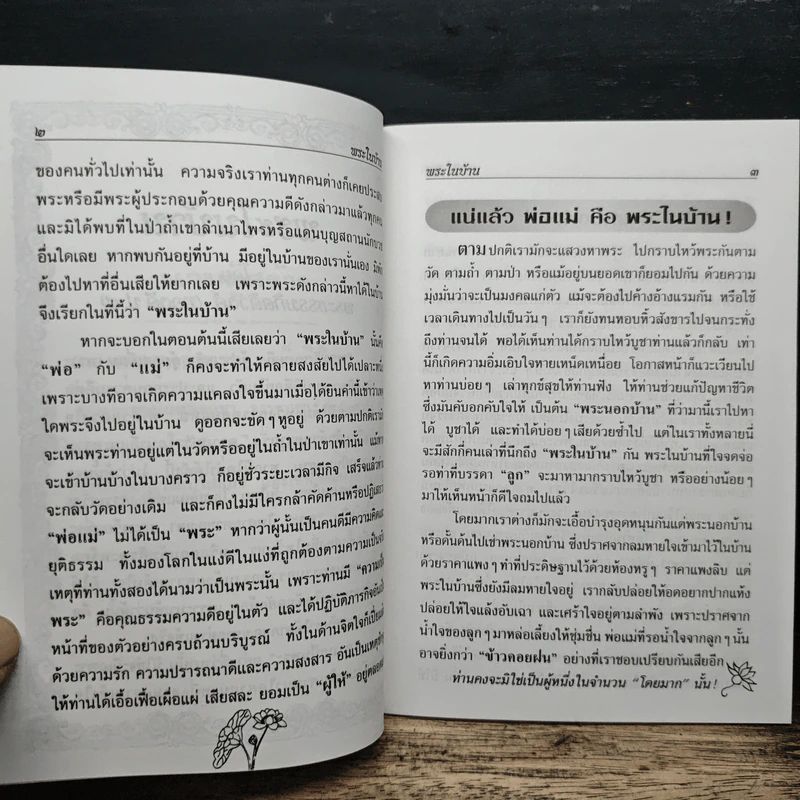 ๒
พระในบ้าน
ของคนทั่วไปเท่านั้น ความจริงเราท่านทุกคนต่างก็เคยประสบ
พระหรือมีพระผู้ประกอบด้วยคุณความดีดังกล่าวมาแล้วทุกคน
และมิได้พบที่ในป่าถ้ำเขาลำเนาไพรหรือแดนบุญสถานนักบวช
อื่นใดเลย หากพบกันอยู่ที่บ้าน มีอยู่ในบ้านของเรานั่นเอง มิพัก
ต้องไปหาที่อื่นเสียให้ยากเลย เพราะพระดังกล่าวนี้หาได้ในบ้าน
จึงเรียกในที่นี้ว่า “พระในบ้าน”
หากจะบอกในตอนต้นนี้เสียเลยว่า “พระในบ้าน” นั้นคือ
“พ่อ” กับ “แม่” ก็คงจะทำให้คลายสงสัยไปได้เปลาะหนึ่ง
เพราะบางทีอาจเกิดความแคลงใจขึ้นมาเมื่อได้ยินคำนี้เข้าว่าเหตุ
ใดพระจึงไปอยู่ในบ้าน ดูออกจะขัดๆ หูอยู่ ด้วยตามปกติเรามัก
จะเห็นพระท่านอยู่แต่ในวัดหรืออยู่ในถ้ำในป่าเขาเท่านั้น แม้ท่าน
จะเข้าบ้านบ้างในบางคราว ก็อยู่ชั่วระยะเวลามีกิจ เสร็จแล้วท่าน
จะกลับวัดอย่างเดิม และก็คงไม่มีใครกล้าคัดค้านหรือปฏิเสธว่า
“พ่อแม่” ไม่ได้เป็น “พระ” หากว่าผู้นั้นเป็นคนดีมีความคิดและ
ยุติธรรม ทั้งมองโลกในแง่ดีในแง่ที่ถูกต้องตามความเป็นจริง
เหตุที่ท่านทั้งสองได้นามว่าเป็นพระนั้น เพราะท่านมี “ความเป็น
พระ” คือคุณธรรมความดีอยู่ในตัว และได้ปฏิบัติภารกิจอันเป็น
หน้าที่ของตัวอย่างครบถ้วนบริบูรณ์ ทั้งในด้านจิตใจก็เปี่ยม
ด้วยความรัก ความปรารถนาดีและความสงสาร อันเป็นเหตุ
ให้ท่านได้เอื้อเฟื้อเผื่อแผ่ เสียสละ ยอมเป็น “ผู้ให้” อยู่ตลอด
พระในบ้าน
๓
แน่แล้ว พ่อแม่ คือ พระในบ้าน!
ตามปกติเรามักจะแสวงหาพระ ไปกราบไหว้พระกันตาม
วัด ตามถ้ำ ตามป่า หรือแม้อยู่บนยอดเขาก็ยอมไปกัน ด้วยความ
มุ่งมั่นว่าจะเป็นมงคลแก่ตัว แม้จะต้องไปค้างอ้างแรมกัน หรือใช้
เวลาเดินทางไปเป็นวันๆ เราก็ยังทนหอบหิ้วสังขารไปจนกระทั่ง
ถึงท่านจนได้ พอได้เห็นท่านได้กราบไหว้บูชาท่านแล้วก็กลับ เท่า
นี้ก็เกิดความอิ่มเอิบใจหายเหน็ดเหนื่อย โอกาสหน้าก็แวะเวียนไป
หาท่านบ่อยๆ เล่าทุกข์สุขให้ท่านฟัง ให้ท่านช่วยแก้ปัญหาชีวิต
ซึ่งมันคับอกคับใจให้ เป็นต้น “พระนอกบ้าน” ที่ว่ามานี้เราไปหา
ได้ บูชาได้ และทำได้บ่อยๆ เสียด้วยซ้ำไป แต่ในเราทั้งหลายนี่
จะมีสักกี่คนเล่าที่นึกถึง “พระในบ้าน” กัน พระในบ้านที่ใจจดจ่อ
รอท่าที่บรรดา “ลูก” จะมาหามากราบไหว้บูชา หรืออย่างน้อยๆ
มาให้เห็นหน้าก็ดีใจถมไปแล้ว
โดยมากเราต่างก็มักจะเอื้อบำรุงอุดหนุนกันแต่พระนอกบ้าน
หรือดั้นด้นไปเช่าพระนอกบ้าน ซึ่งปราศจากลมหายใจเข้ามาไว้ในบ้าน
ด้วยราคาแพงๆ ทำที่ประดิษฐานไว้ด้วยห้องหรูๆ ราคาแพงลิบ แต่
พระในบ้านซึ่งยังมีลมหายใจอยู่ เรากลับปล่อยให้อดอยากปากแห้ง
ปล่อยให้ใจแล้งอับเฉา และเศร้าใจอยู่ตามลำพัง เพราะปราศจาก
น้ำใจของลูกๆ มาหล่อเลี้ยงให้ชุ่มชื่น พ่อแม่ที่รอน้ำใจจากลูกๆ นั้น
อาจยิ่งกว่า “ข้าวคอยฝน” อย่างที่เราชอบเปรียบกันเสียอีก
ท่านคงจะมิใช่เป็นผู้หนึ่งในจำนวน “โดยมาก” นั้น!